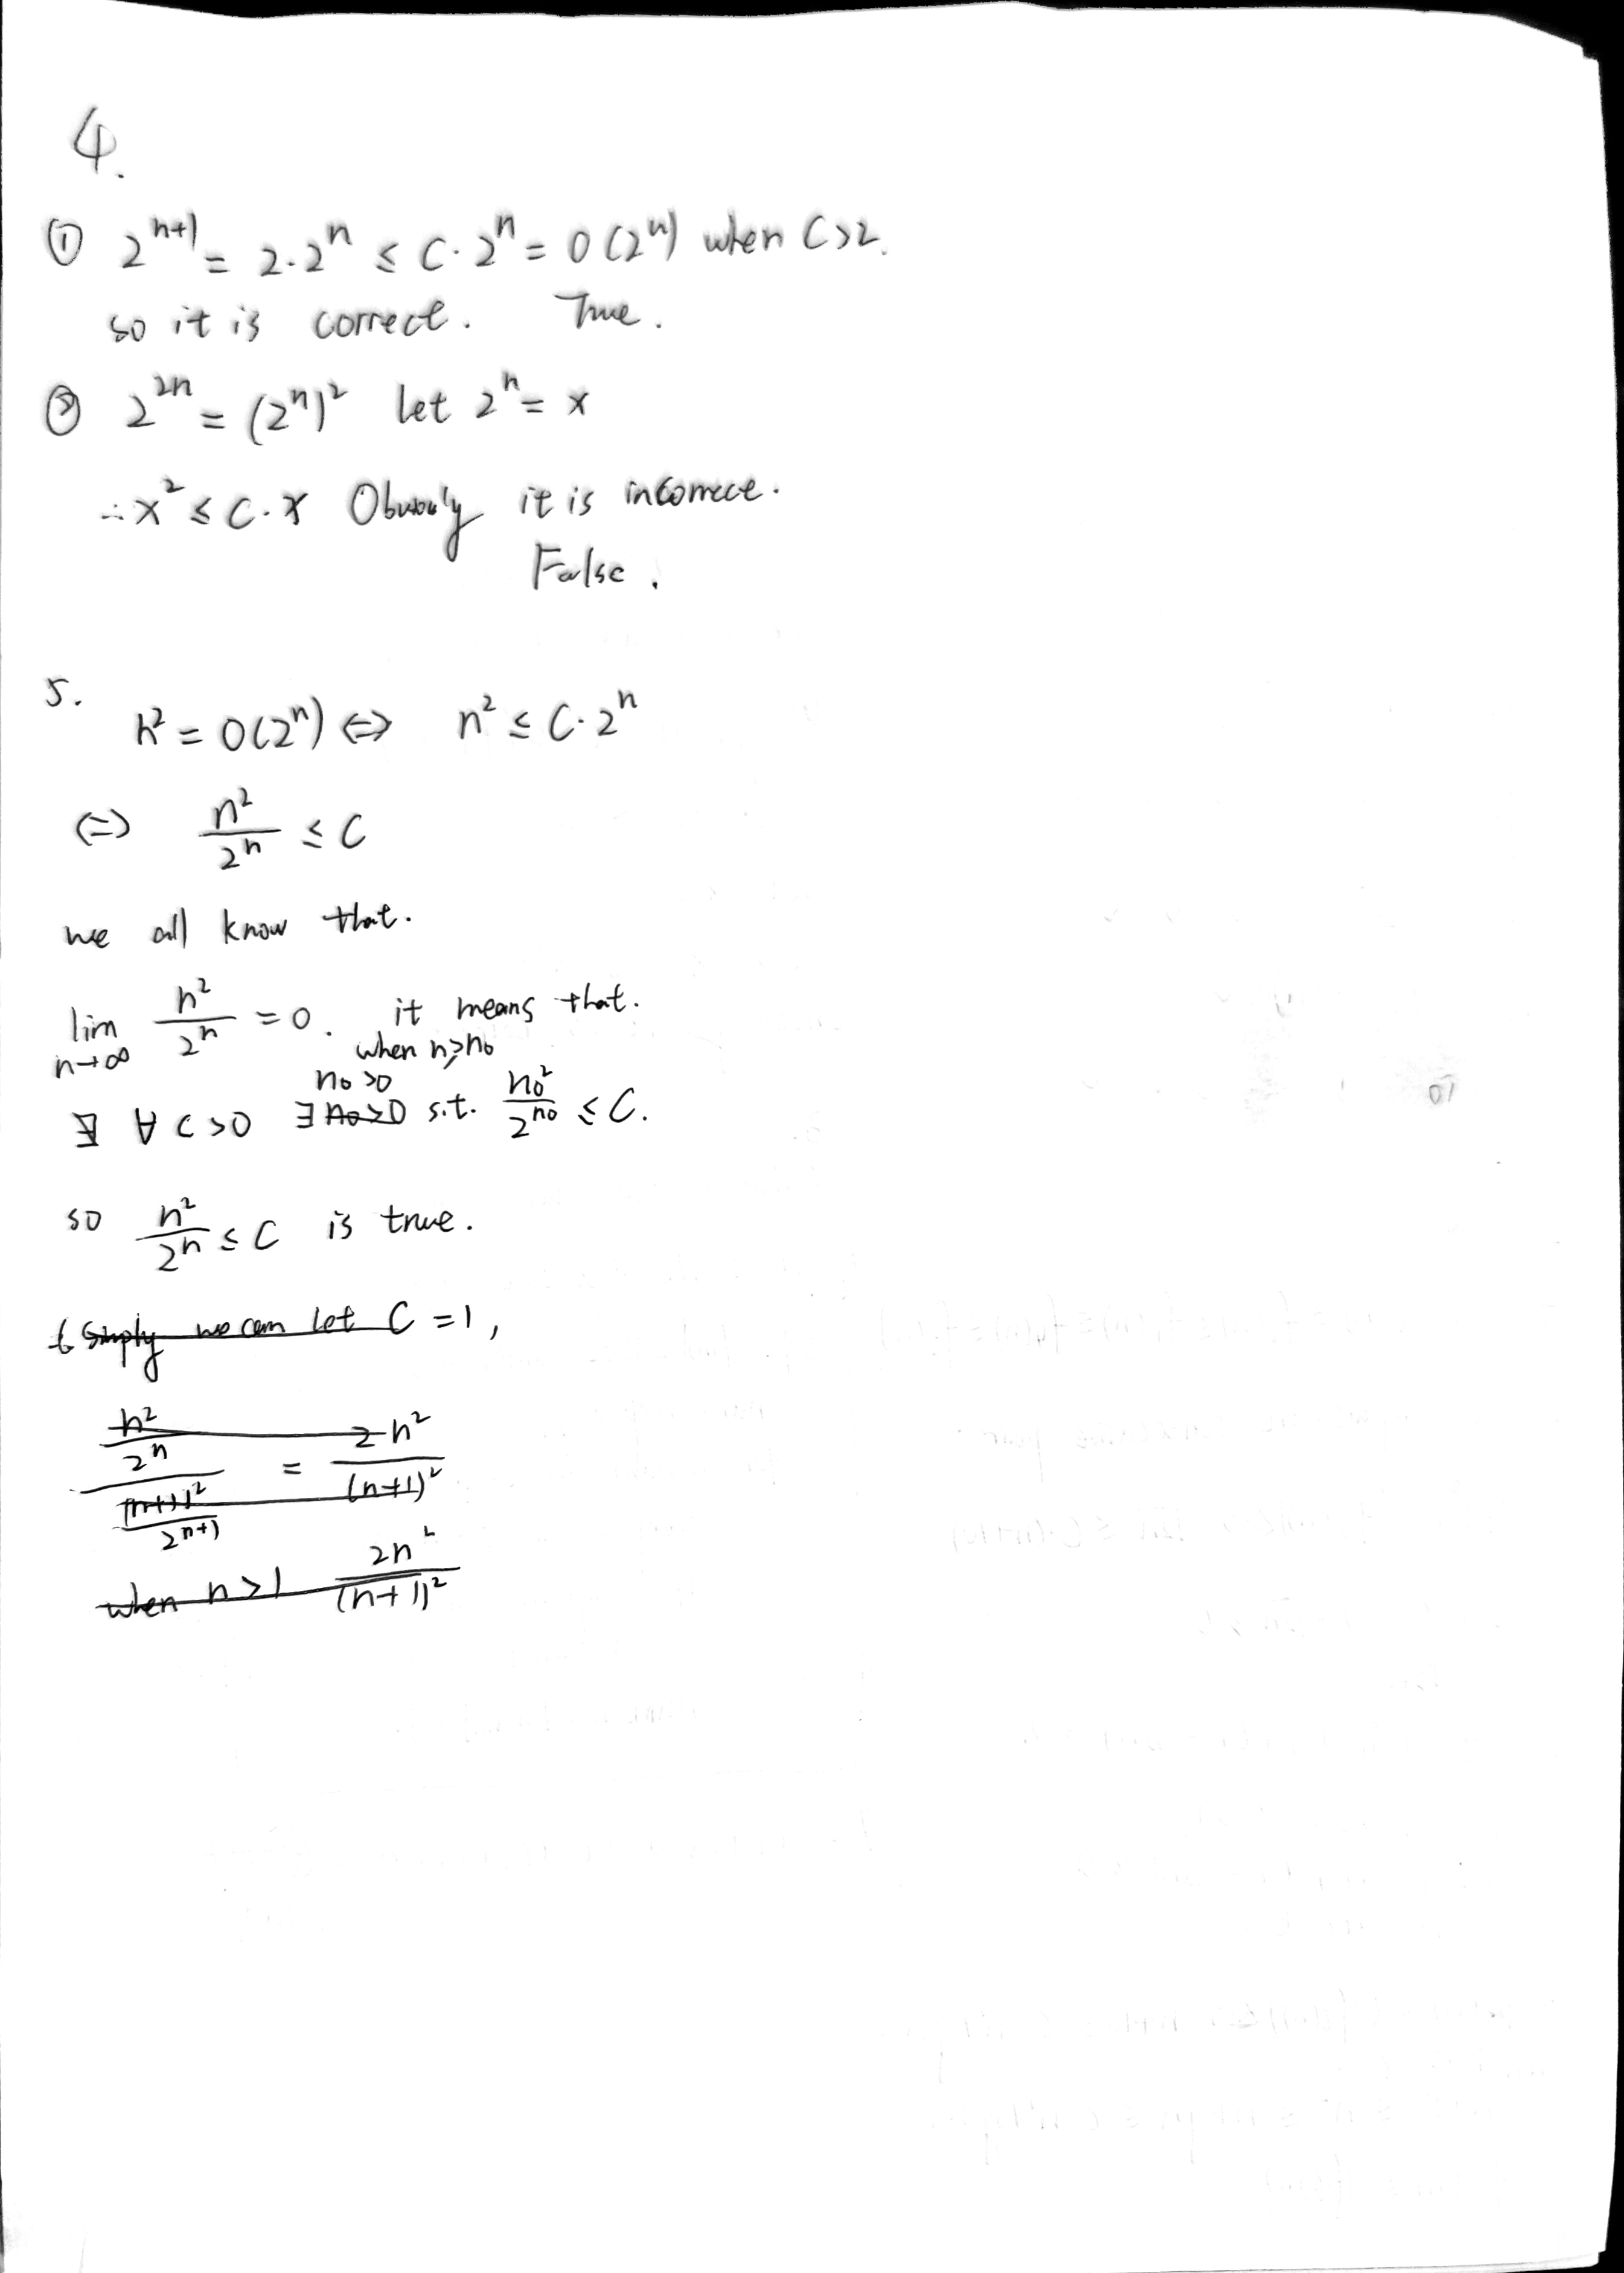 4.
① 2^{n+1} = 2·2^n ≤ C·2^n = O(2^n) when C>2.
so it is correct. True.
② 2^{2n} = (2^n)^2 let 2^n = x
∴ x^2 ≤ C·x Obviouly it is incorrect.
False.
5.
n^2 = O(2^n) ⇔ n^2 ≤ C·2^n
⇔ n^2/2^n ≤ C
we all know that.
lim n→∞ n^2/2^n = 0. it means that.
when n≥n0
n0>0
∀ C>0 ∃ n0>0 s.t. n0^2/2^{n0} ≤ C.
so n^2/2^n ≤ C is true.
Simply we can let C = 1,
(n^2/2^n)/((n+1)^2/2^{n+1}) = 2n^2/(n+1)^2
when n>1 2n^2/(n+1)^2